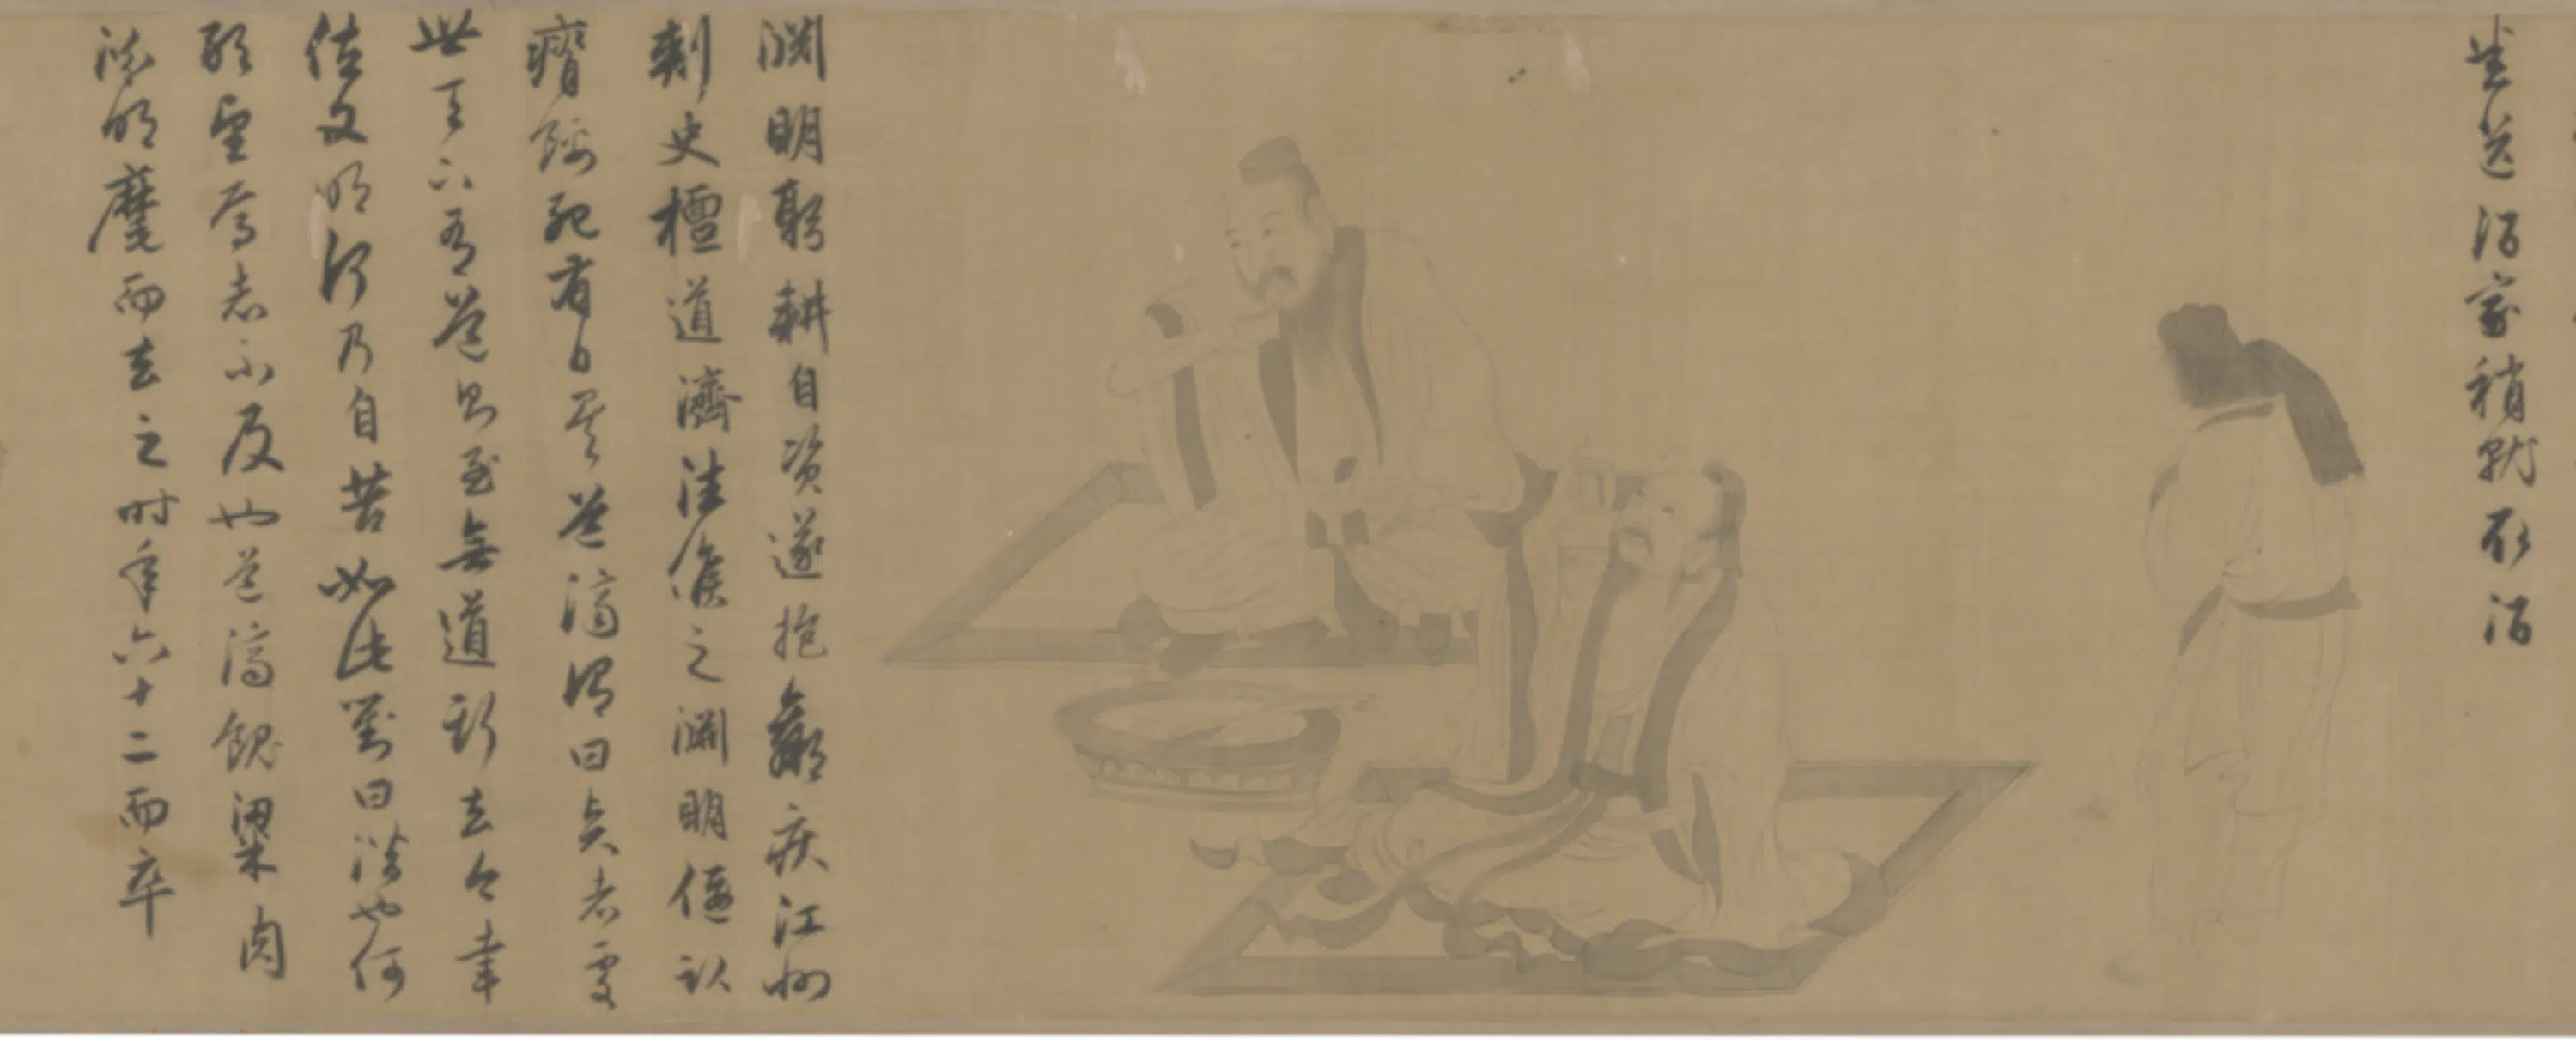 悉送酒家稍就取酒
淵明躬耕自資遂抱羸疾江州
刺史檀道濟往候之淵明偃卧
瘠餒殆有日矣道濟謂曰夫賢者處
世天下無道則隱有道則至今子
生文明之世奈何自苦如此對曰潛也何
敢望賢志不及也道濟饋粱肉
淵明麾而去之時年六十二而卒